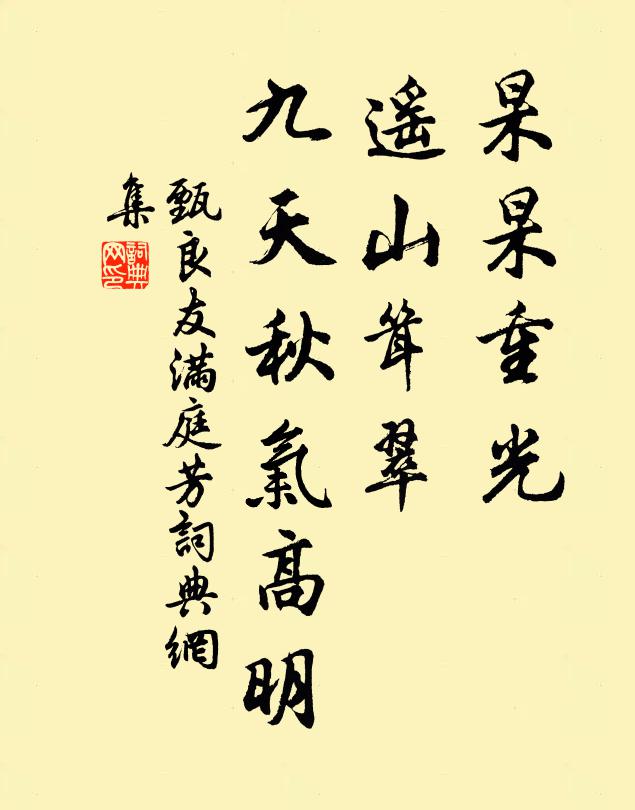 杲杲重光
遥山耸翠
九天秋氣高明
甄良友滿庭芳詞典網
集
詞典网印